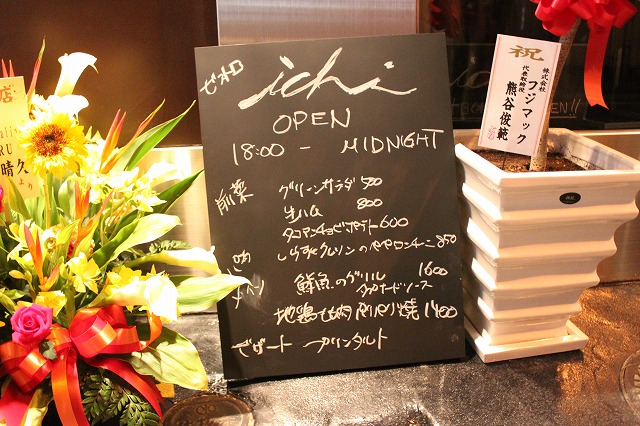 ichi
OPEN
18:00 - MIDNIGHT
前菜 グリーンサラダ 500
生ハム 800
タコアンチョビポテト 600
しらすとクレソンのペペロンチーニ 850
メイン 鮮魚のグリル 1600
タプナードソース
地鶏もも肉パリパリ焼 1400
デザート プリンタルト
祝
株式会社 フジマック
代表取締役 熊谷俊範
店
晴久
より